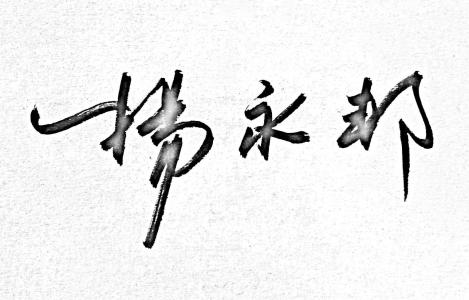 杨永邦